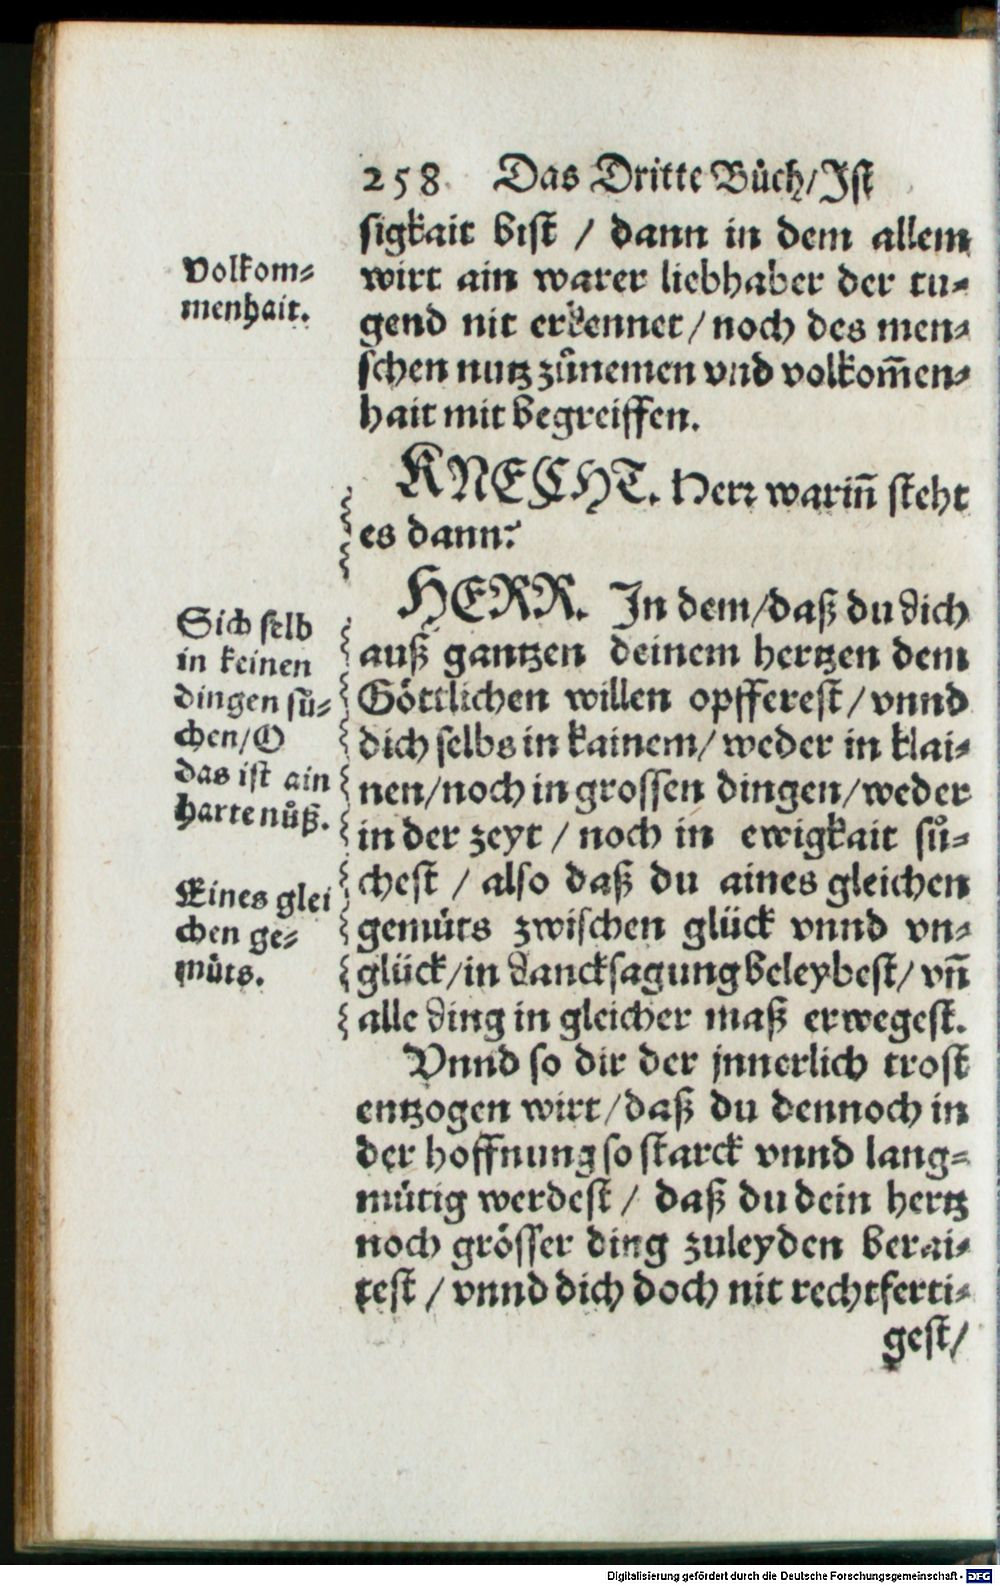 258 Das Dritte Bůch/Ist
sigkait bist / dann in dem allem
wirt ain warer liebhaber der tu⸗
gend nit erkennet/noch des men⸗
schen nutz zůnemen vnd volkom̄en⸗
hait mit begreiffen.
KNECHT. Herr warin̄ steht
es dann?
HERR. In dem/daß du dich
auß gantzen deinem hertzen dem
Göttlichen willen opfferest/vnnd
dich selbs in kainem/weder in klai⸗
nen/noch in grossen dingen/weder
in der zeyt / noch in ewigkait sů⸗
chest / also daß du aines gleichen
gemüts zwischen glück vnnd vn⸗
glück/in dancksagung beleybest/vn̄
alle ding in gleicher maß erwegest.
Vnnd so dir der jnnerlich trost
entzogen wirt/daß du dennoch in
der hoffnung so starck vnnd lang⸗
mütig werdest / daß du dein hertz
noch grösser ding zuleyden berai⸗
test / vnnd dich doch nit rechtferti⸗
gest/
Volkom⸗
menhait.
Sich selb
in keinen
dingen sů⸗
chen/O
das ist ain
harte nůß.
Eines glei
chen ge⸗
müts.
Digitalisierung gefördert durch die Deutsche Forschungsgemeinschaft - DFG